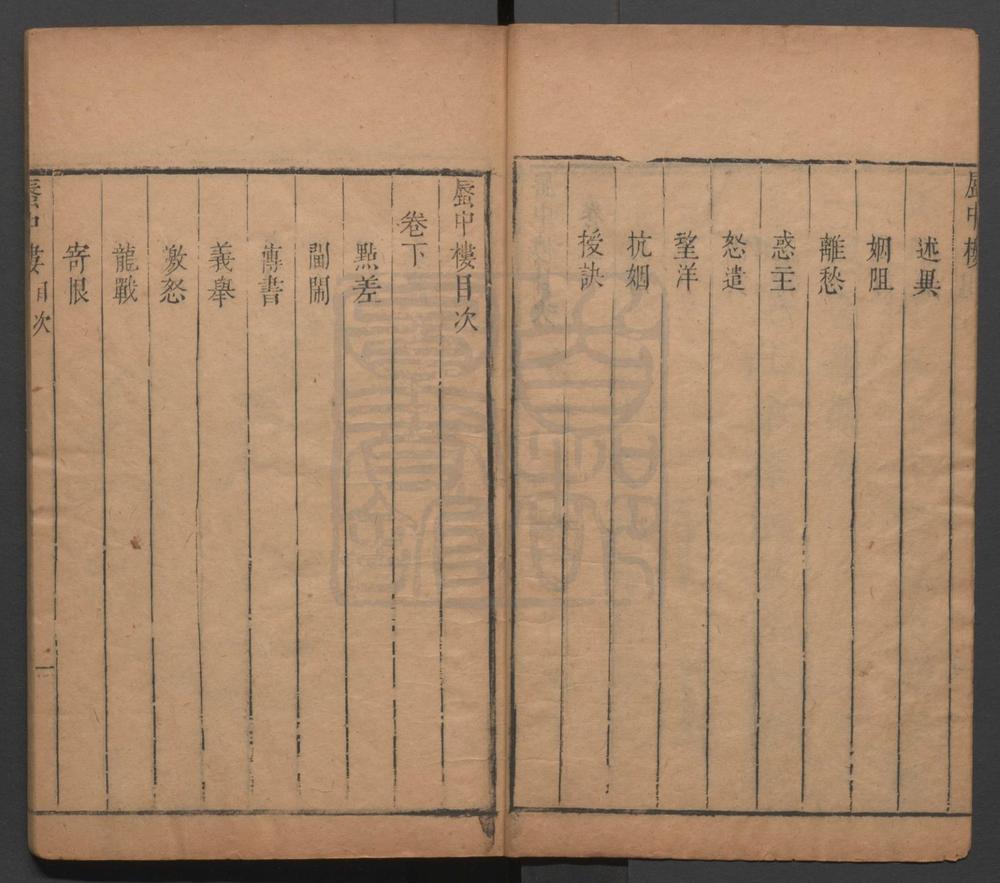 蜃中樓
述異
姻阻
離愁
惑主
怒遣
望洋
抗姻
授訣
蜃中樓目次
卷下
點差
閙閙
傳書
義舉
激怒
龍戰
寄恨
蜃中樓目次
一